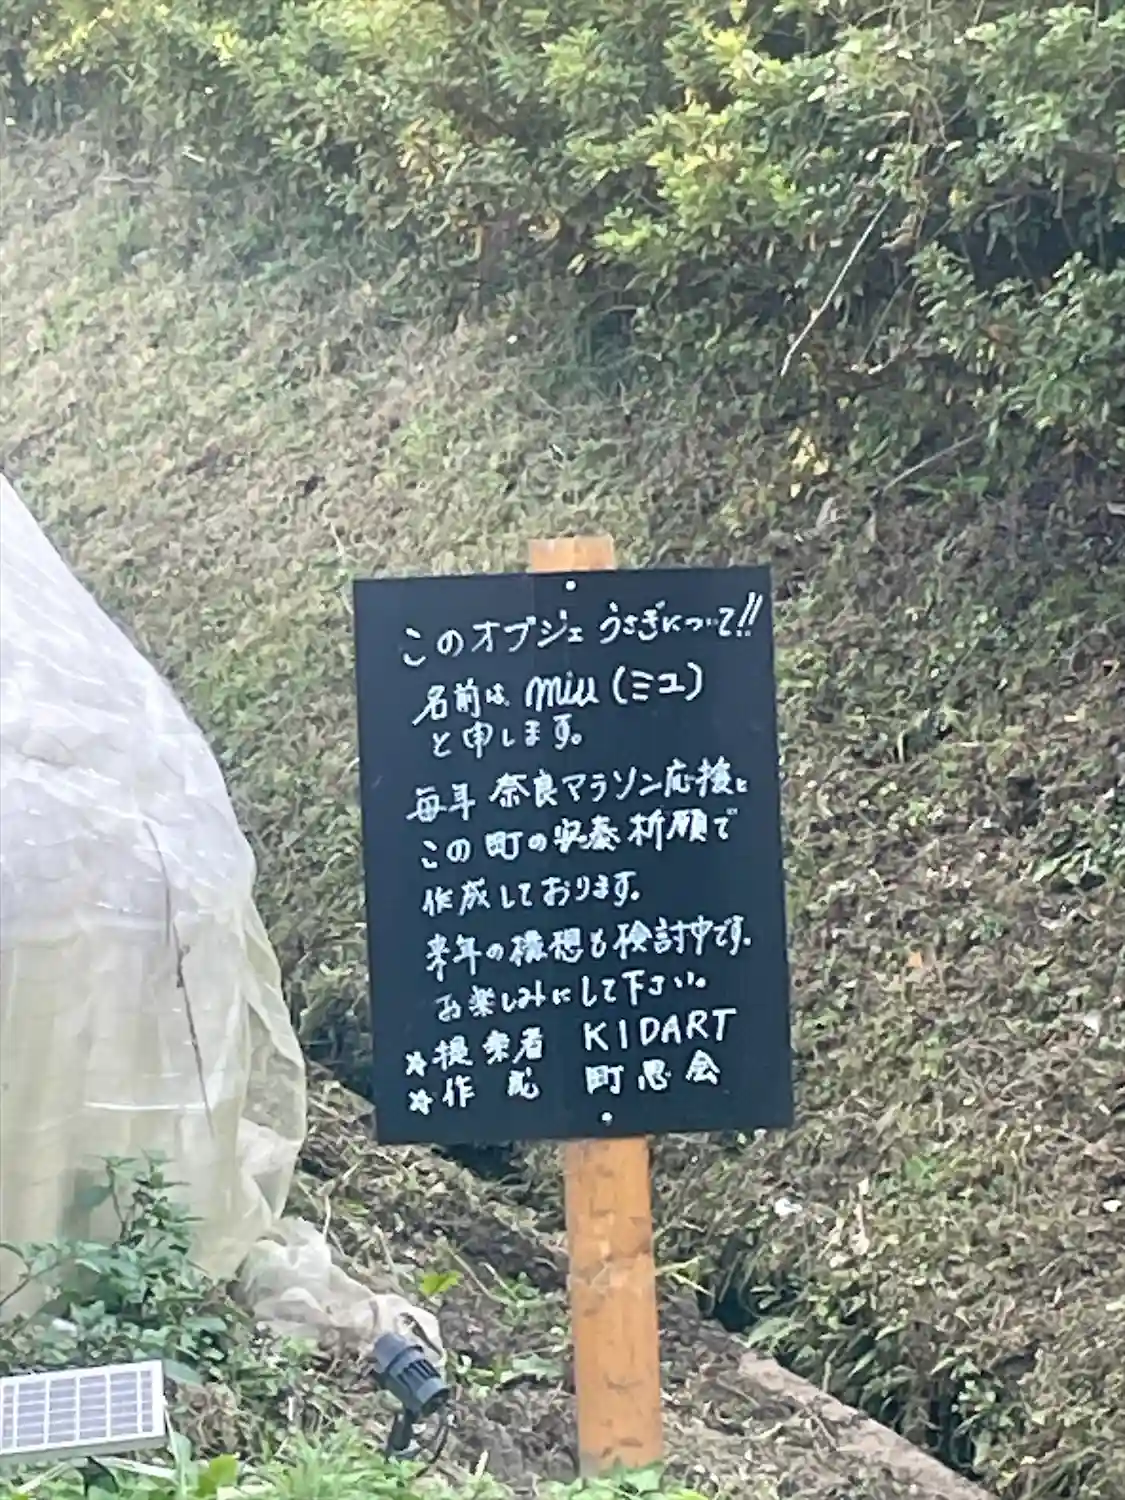 このオブジェ うさぎについて!!
名前は miu (ミユ)
と申します。
毎年 奈良マラソン応援と
この町の安泰祈願で
作成しております。
来年の構想も検討中です。
お楽しみにして下さい。
☆提案者 KIDART
☆作成 町思会